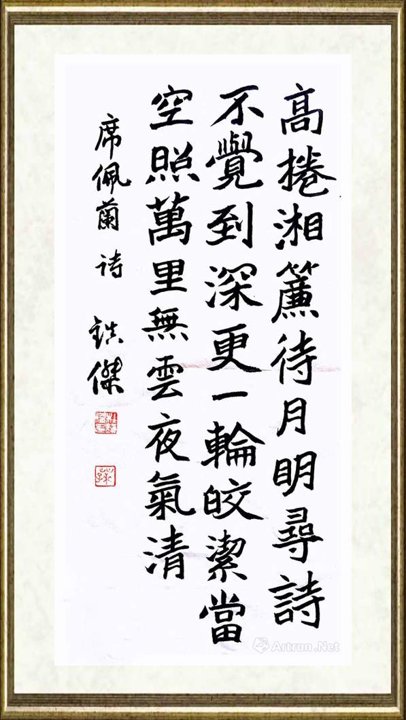 高捲湘簾待月明尋詩
不覺到深更一輪皎潔當
空照萬里無雲夜氣清
席佩蘭诗 鉄傑
Artron.Net